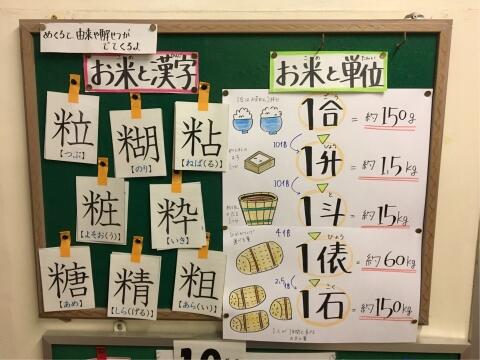 めくると、由来や解せつが
でてくるよ。
お米と漢字
粒
【つぶ】
糊
【のり】
粘
【ねば(る)】
粧
【よそお(う)】
粋
【いき】
糖
【あめ】
精
【しら(げる)】
粗
【あら(い)】
お米と単位
こめ
たんい
ごう
1合 = 約150g
10倍
しょう
1升 = 約1.5kg
10倍
と
1斗 = 約15kg
4倍
ひょう
1俵 = 約60kg
2.5倍
こく
1石 = 約150kg